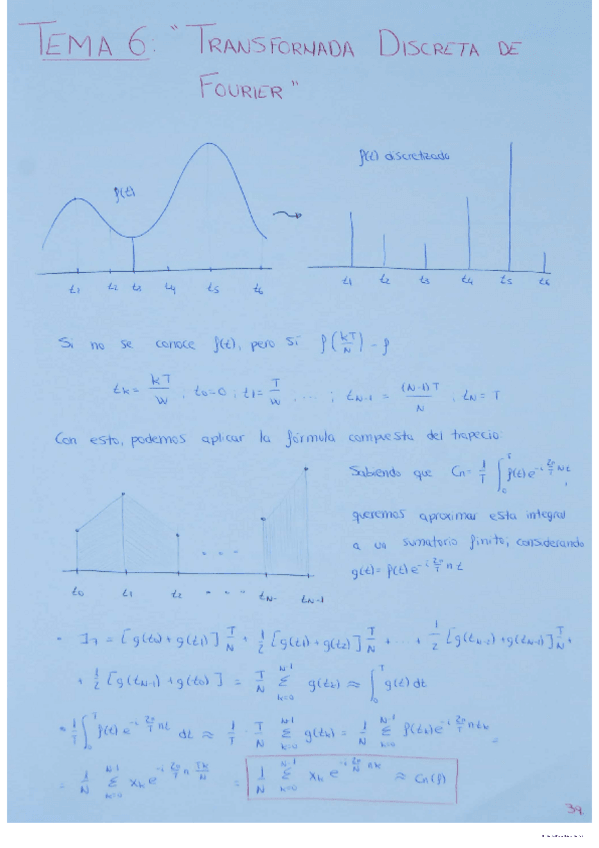 TEMA 6: "TRANSFORMADA DISCRETA DE
FOURIER"
f(t)
f(t) discretizado
t₁ t₂ t₃ t₄ t₅ t₆
t₁ t₂ t₃ t₄ t₅ t₆
Si no se conoce f(t), pero sí f(kT/N) = f
tₖ = kT/N ; t₀=0 ; t₁ = T/N ... ; t_N-1 = (N-1)T/N ; t_N = T
Con esto, podemos aplicar la fórmula compuesta del trapecio:
Sabiendo que Cn = 1/T ∫₀ᵀ f(t) e^(-i 2π/T nt),
queremos aproximar esta integral
a un sumatorio finito, considerando
g(t) = f(t) e^(-i 2π/T nt)
t₀ t₁ t₂ ... t_N- t_N-1
[g(t₀)+g(t₁)] T/N + 1/2 [g(t₁)+g(t₂)] T/N + ... + 1/2 [g(t_N-2)+g(t_N-1)] T/N +
+ 1/2 [g(t_N-1)+g(t₀)] = T/N Σ_(k=0)^(N-1) g(tₖ) ≈ ∫₀ᵀ g(t) dt
1/T ∫₀ᵀ f(t) e^(-i 2π/T nt) dt ≈ 1/T · T/N Σ_(k=0)^(N-1) g(tₖ) = 1/N Σ_(k=0)^(N-1) f(tₖ) e^(-i 2π/T ntₖ) =
= 1/N Σ_(k=0)^(N-1) xₖ e^(-i 2π/T n Tk/N) = 1/N Σ_(k=0)^(N-1) xₖ e^(-i 2π/N nk) ≈ Cn(f)
39